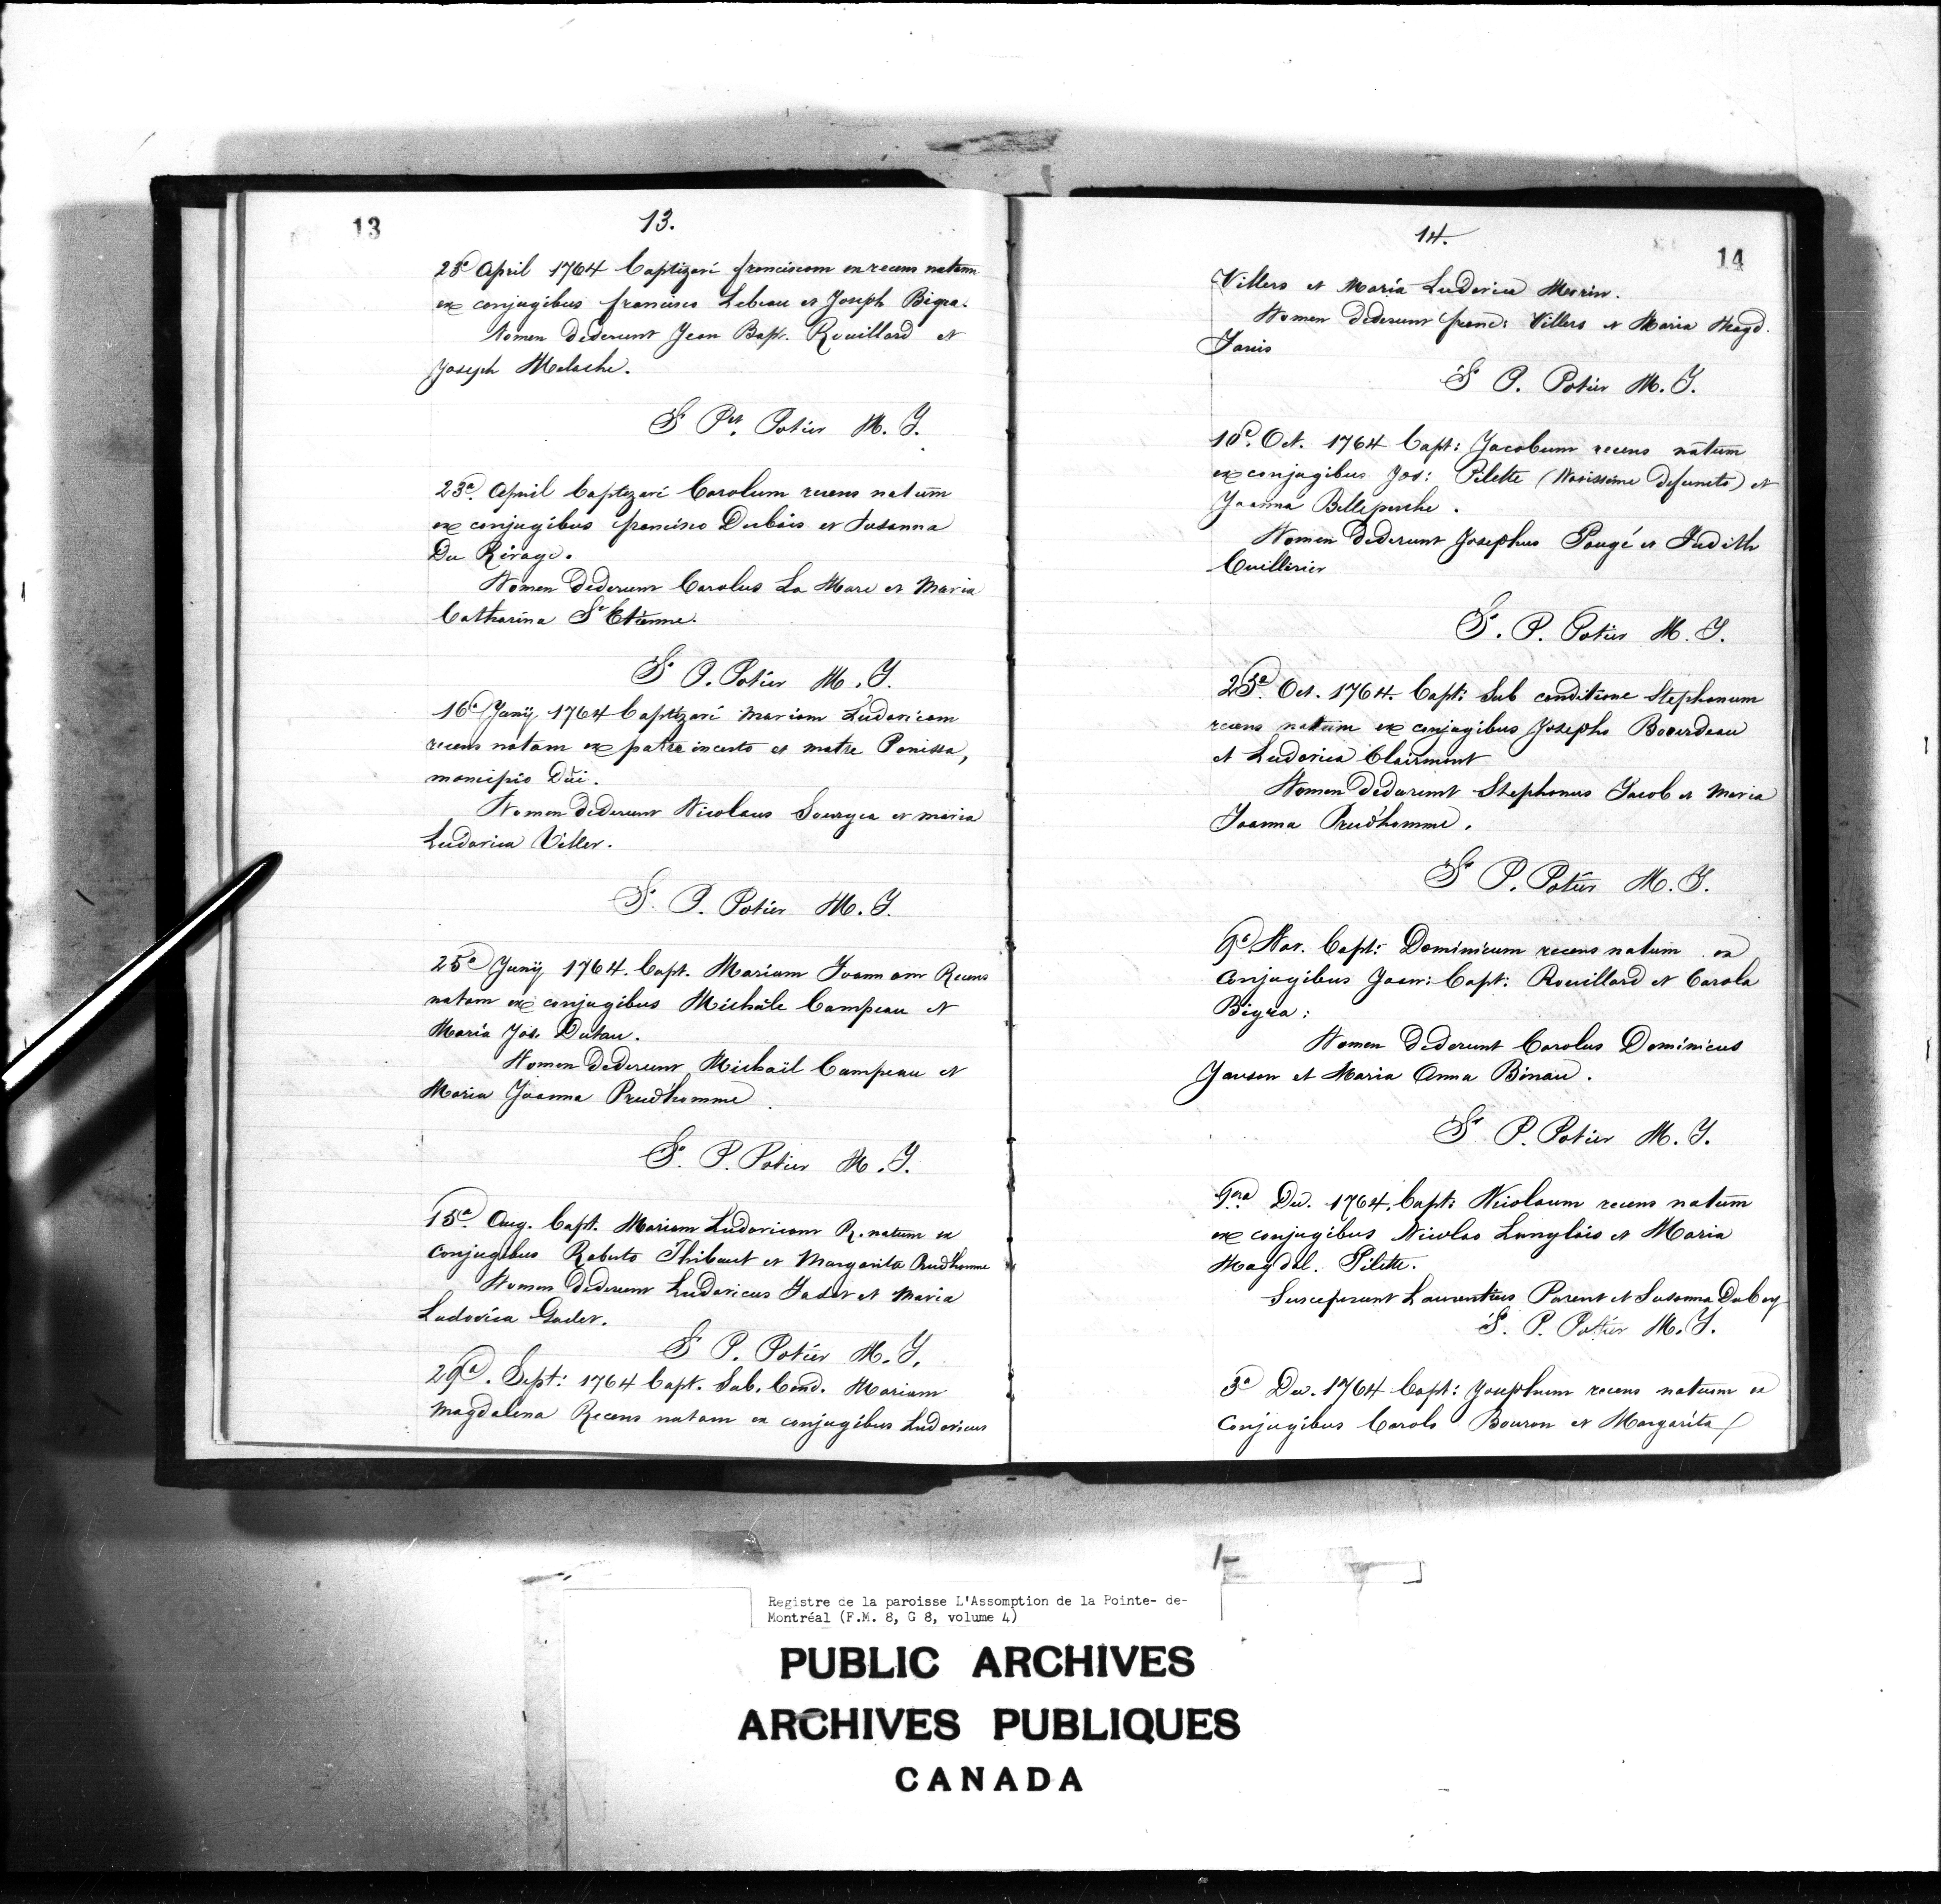 13
13.
28a April 1764 baptizavi franciscum en recens natum
ex conjugibus francisco Lebeau et Joseph Bigra.
Nomen dederunt Jean Bapt. Rouillard et
Joseph Maloche.
S Pet. Potier M. J.
23a. April baptizavi Carolum recens natum
ex conjugibus francisco Dubois et Susanna
Du Rivage.
Nomen dederunt Carolus La Mare et Maria
Catharina St Etienne.
S P. Potier M. J.
16a Junij 1764 baptizavi mariam Ludovicam
recens natam ex patre incerto et matre Panissa,
mancipio Dui.
Nomen dederunt Nicolaus et maria
Ludovica Viller.
S. P. Potier M. J.
25a Junij 1764. bapt. Mariam Joannam Recens
natam ex conjugibus Michäle Campeau et
Maria Jos. Dutau.
Nomen dederunt Michaïl Campeau et
Maria Joanna Prudhomme.
S. P. Potier M. J.
15a Aug. bapt. Mariam Ludovicam R. natum ex
conjugibus Roberto Thibaut et Margarita Prudhomme
Nomen dederunt Ludovicus Jadot et Maria
Ludovica Godet.
S P. Potier M. J.
29a. Sept: 1764 bapt. Sub. Cond. Mariam
Magdalena Recens natam ex conjugibus Ludovicus
14.
14
Villers et Maria Ludovica Morin.
Nomen dederunt franc: Villers et Maria Magd.
Janis
S P. Potier M. J.
10a. Oct. 1764 bapt: Jacobum recens natum
ex conjugibus Jos: Pilette (Novissime defuncto) et
Joanna Belleperche.
Nomen dederunt Josephus Pougé et Judith
Cuillirier
S. P. Potier M. J.
25a. Oct. 1764. bapt: Sub conditione Stephanum
recens natum ex conjugibus Josepho Bouerdeau
et Ludovica Clairmont
Nomen dederunt Stephanus Jacob et Maria
Joanna Prudhomme.
S P. Potier M. J.
9a Nov. bapt: Dominicum recens natum ex
conjugibus Joan: bapt: Rouillard et Carola
Bigra:
Nomen dederunt Carolus Dominicus
Janson et Maria Anna Binau.
S P. Potier M. J.
Dec. 1764. bapt: Nicolaum recens natum
ex conjugibus Nicolao Langlois et Maria
Magdal. Pilette.
Susceperunt Laurentius Parent et Susanna Duboy
S. P. Potier M. J.
3a Dec. 1764 bapt: Josephum recens natum ex
conjugibus Carolo Bouron et Margarita
Registre de la paroisse L'Assomption de la Pointe- de-
Montréal (F.M. 8, G 8, volume 4)
PUBLIC ARCHIVES
ARCHIVES PUBLIQUES
CANADA